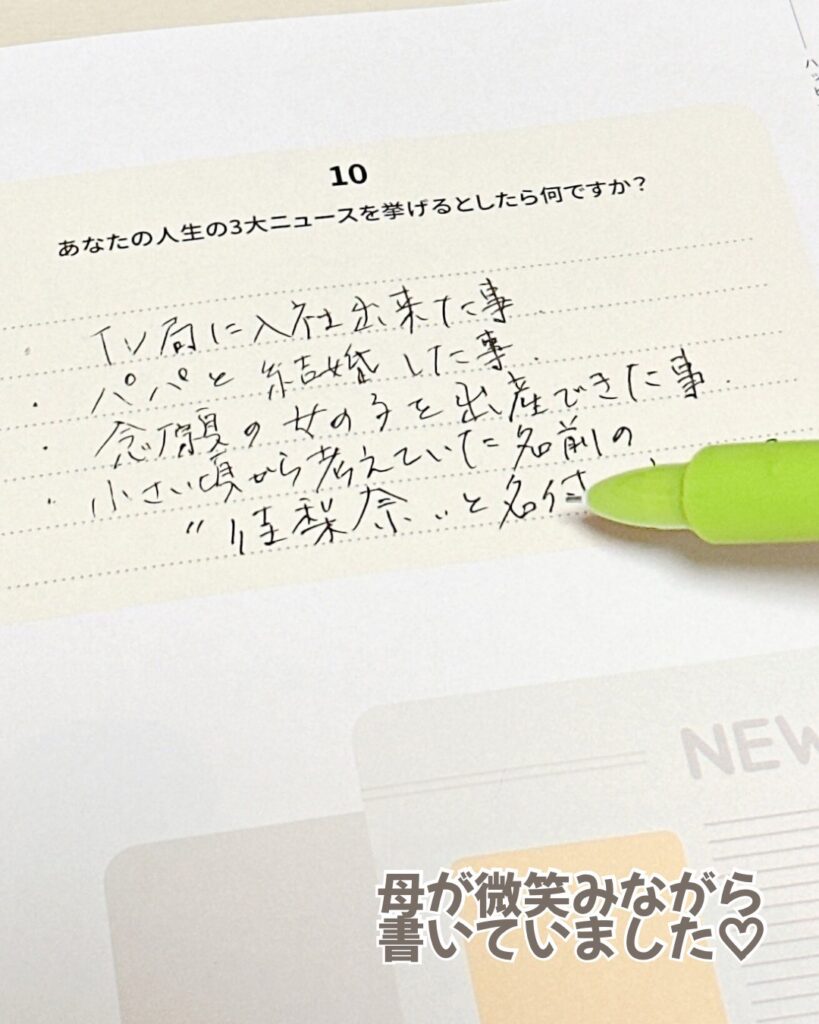 10
あなたの人生の3大ニュースを挙げるとしたら何ですか?
・TV局に入社出来た事
・パパと結婚した事.
・念願の女の子を出産できた事.
・小さい頃から考えていた名前の
"佳梨奈"と名付
NEW
母が微笑みながら
書いていました♡